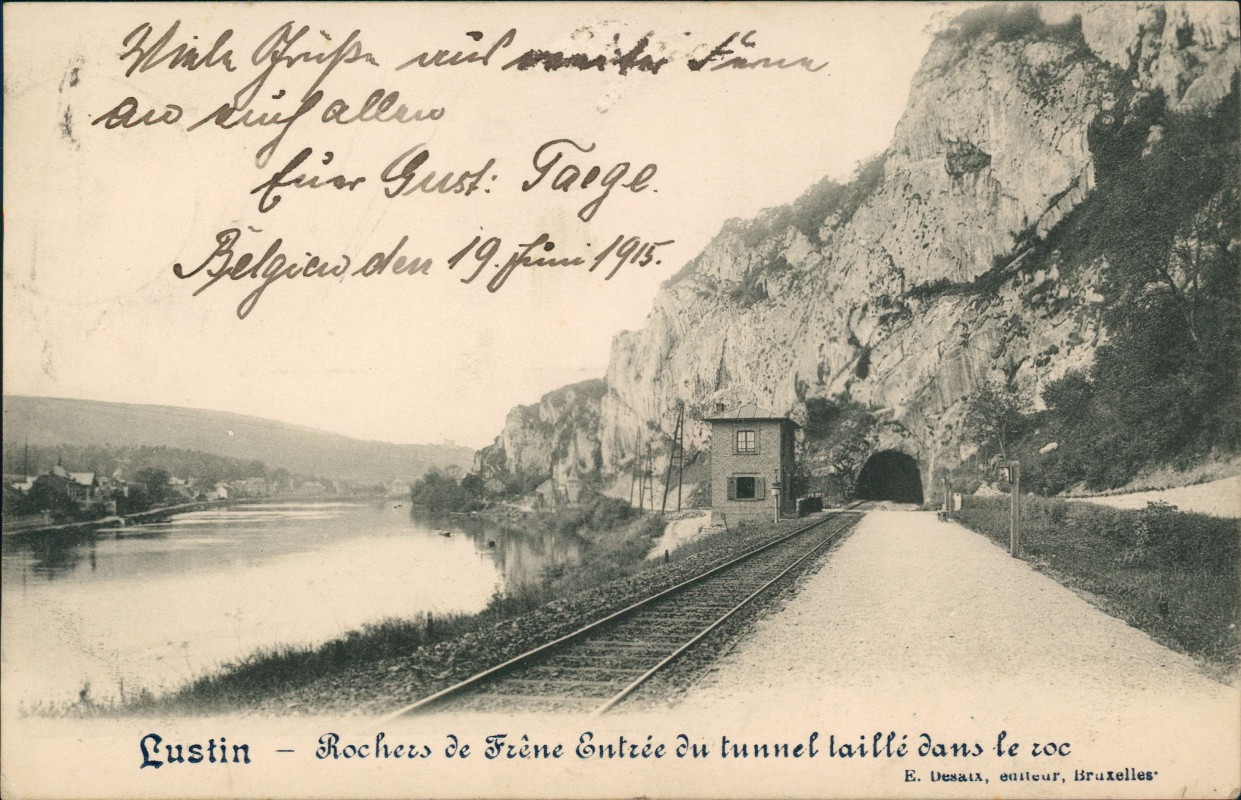 Viele Grüße aus weiter Ferne
an Euch allen
Euer Gust: Taege.
Belgien den 19. Juni 1915.
Lustin – Rochers de Frêne Entrée du tunnel taillé dans le roc
E. Desaix, éditeur, Bruxelles